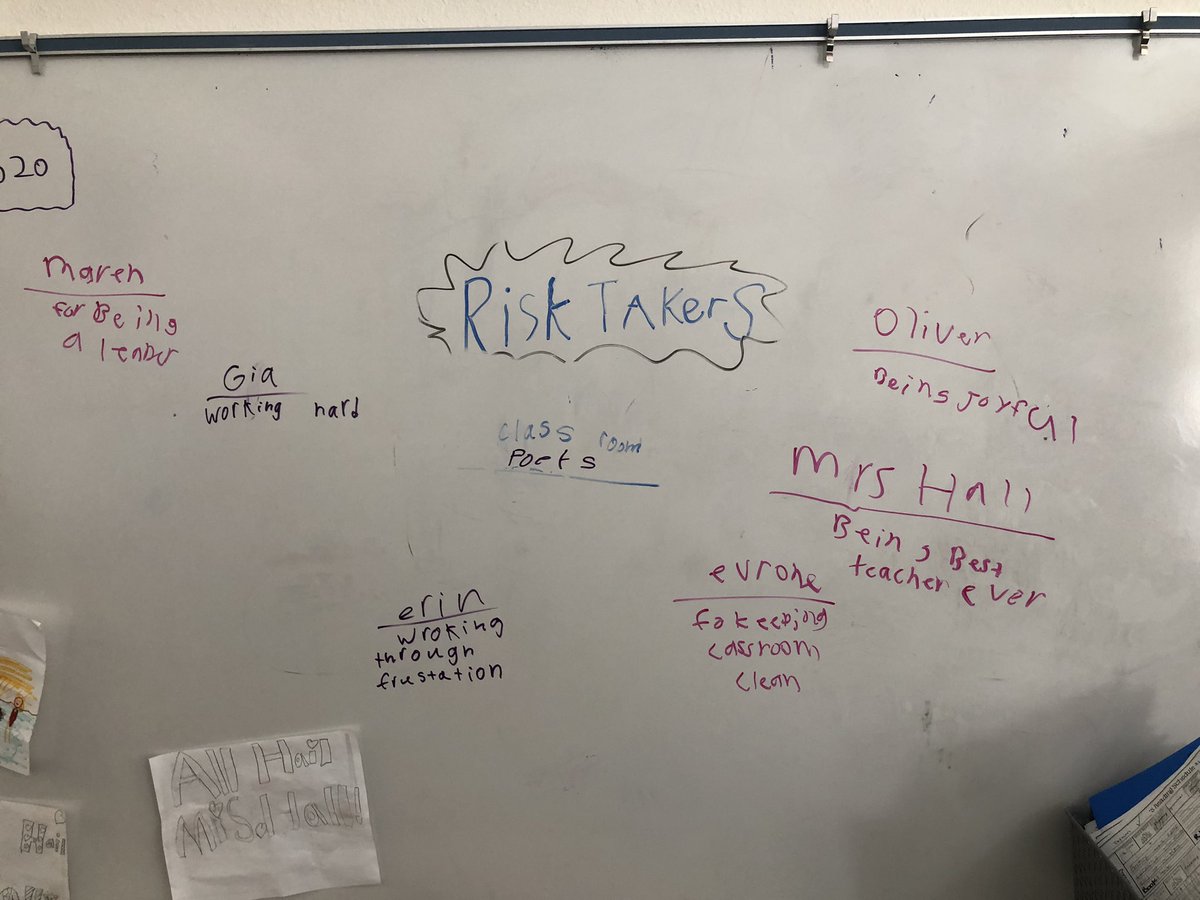 20
Maren
for Being
a leader
Gia
working hard
Risk TAkerS
class room
Poets
Oliver
Being Joyful
Mrs Hall
Being Best
teacher ever
erin
wroking
through
frustation
evrone
fo keeping
cassroom
clean
All Hail
MisdHall!
Hail